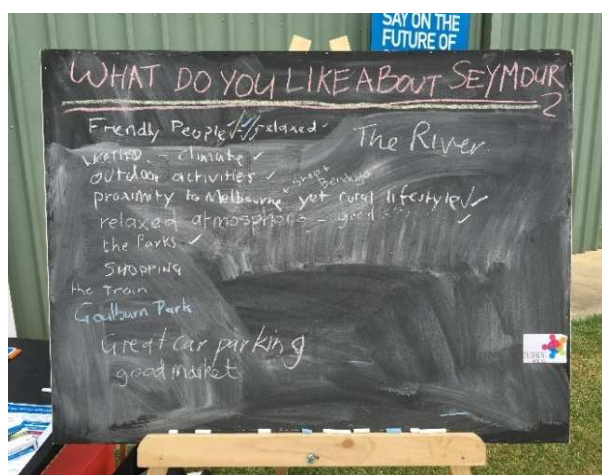 SAY ON THE
FUTURE OF
WHAT DO YOU LIKE ABOUT SEYMOUR
?
Friendly People relaxed
The River
climate
outdoor activities
proximity to Melbourne yet rural lifestyle
relaxed atmosphere - good
the Parks
SHOPPING
the Train
Goulburn Park
Great car parking
good market